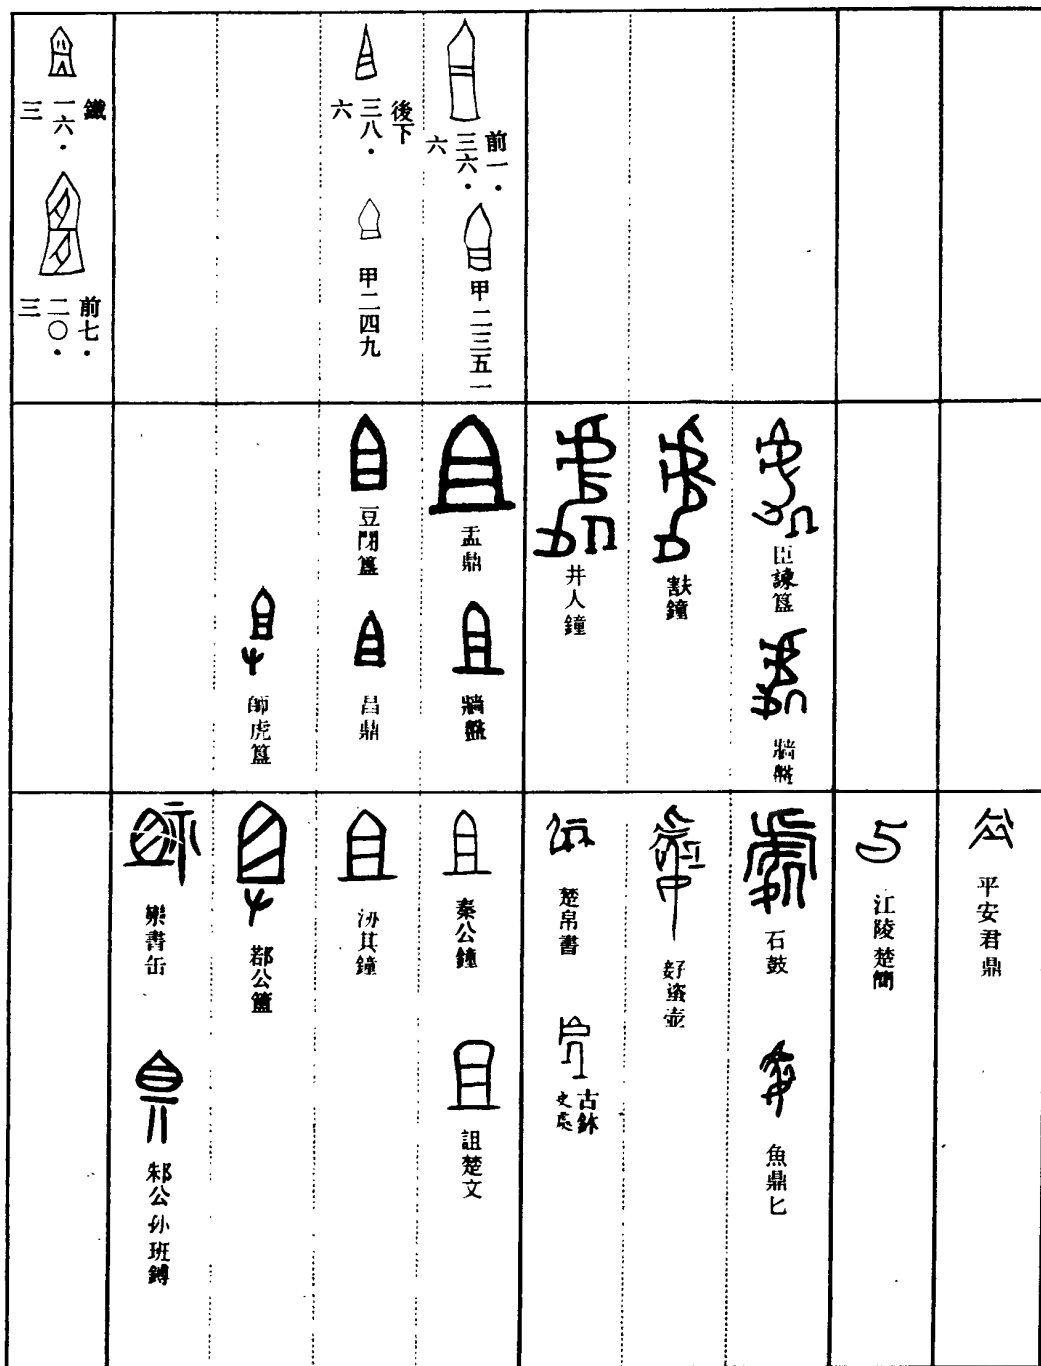 前一・
三六・
六
甲二三五一
後下
三八・
六
甲二四九
鐵
一六・
三
前七・
二〇・
三
臣諫簋
牆盤
㝬鐘
井人鐘
盂鼎
牆盤
豆閉簋
曶鼎
師虎簋
平安君鼎
江陵楚簡
石鼓
魚鼎匕
𧊒壺
楚帛書
古鉢
史處
秦公鐘
詛楚文
汈其鐘
鄀公簠
欒書缶
邾公孙班鎛